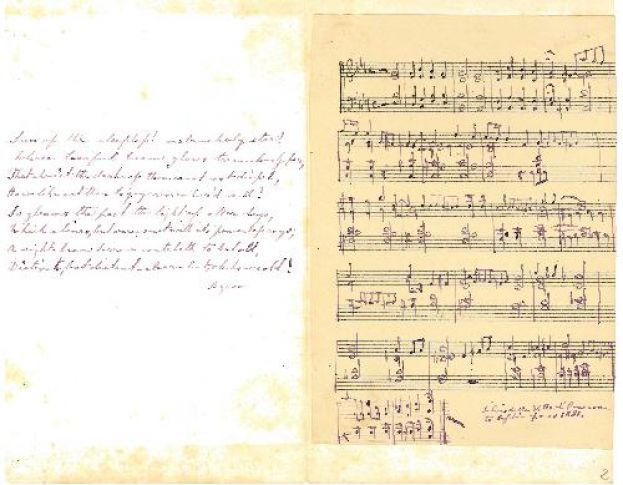 Sun of the sleepless! melancholy star!
Whose tearful beam glows tremulously far,
That show'st the darkness thou canst not dispel,
How like art thou to joy remember'd well!
So gleams the past the light of other days,
Which shines, but warms not with its powerless rays;
A night beam sorrow watcheth to behold,
Distinct, but distant clear but oh how cold!
Byron
2